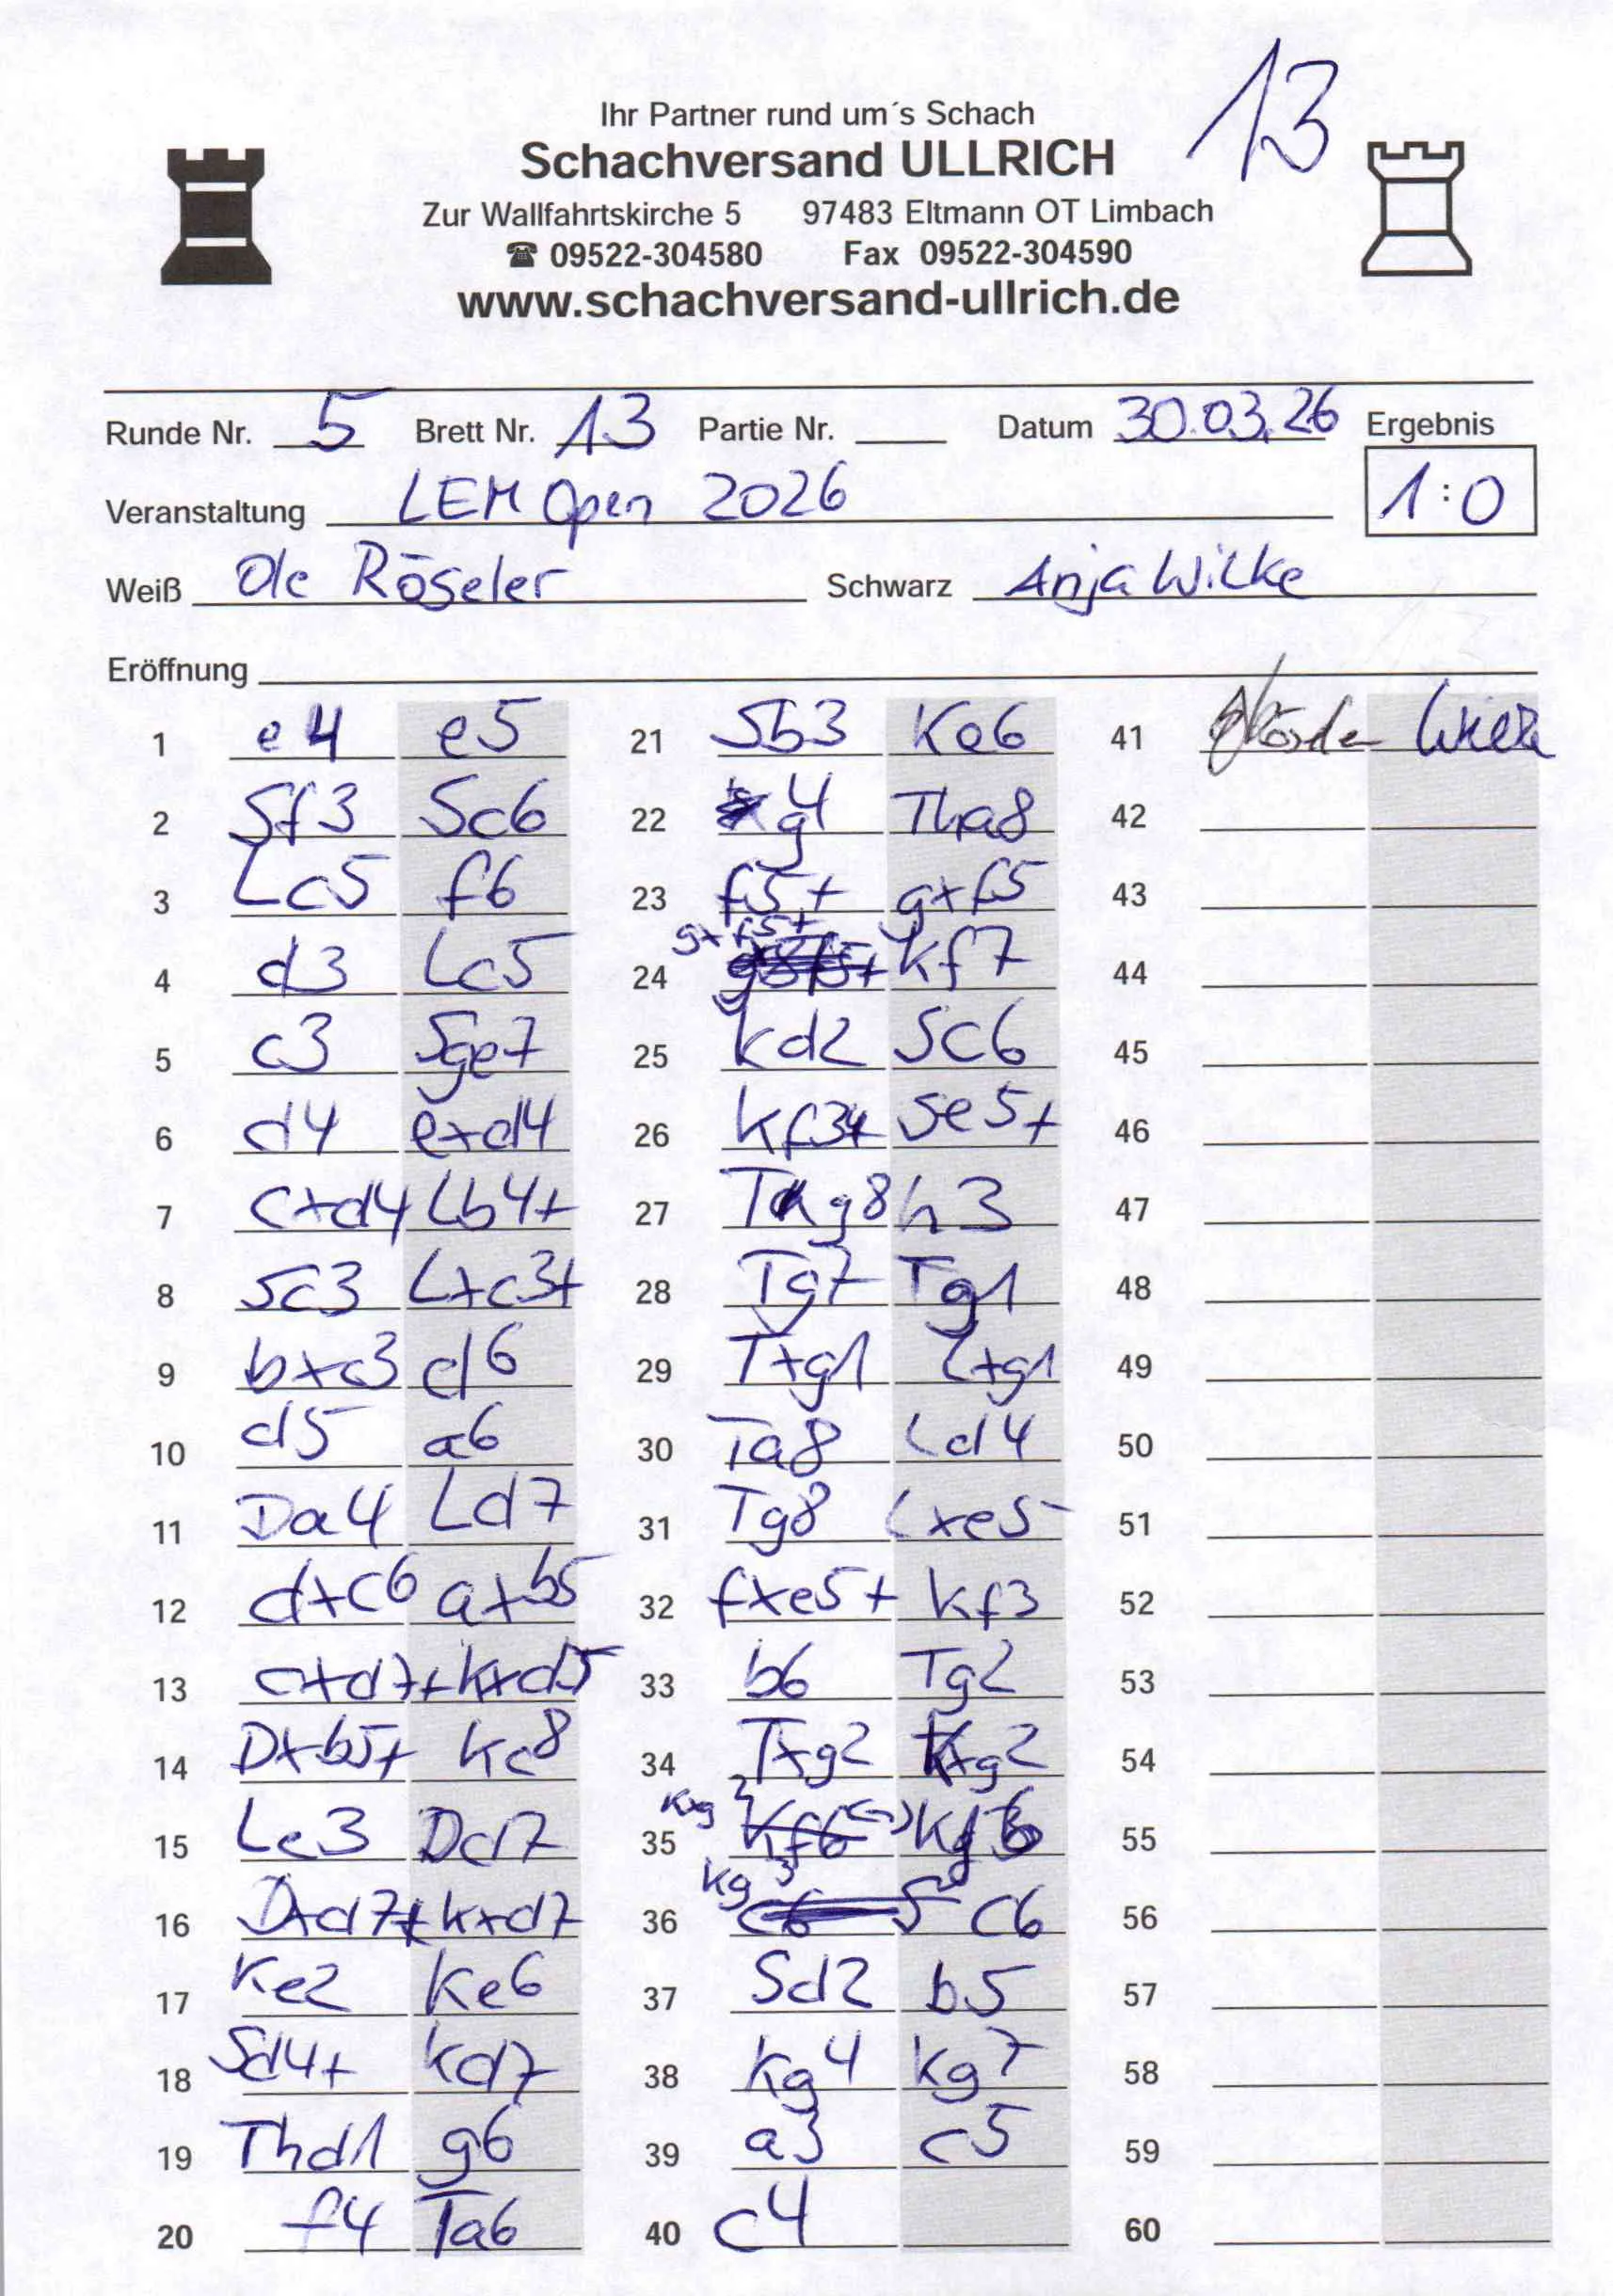 13
Ihr Partner rund um´s Schach
Schachversand ULLRICH
Zur Wallfahrtskirche 5 97483 Eltmann OT Limbach
☎ 09522-304580 Fax 09522-304590
www.schachversand-ullrich.de
Runde Nr. 5 Brett Nr. 13 Partie Nr. Datum 30.03.26 Ergebnis
Veranstaltung LEM Open 2026 1:0
Weiß Ole Röseler Schwarz Anja Wilke
Eröffnung
1 e4 e5 21 Sb3 Ke6 41
2 Sf3 Sc6 22 g4 Tha8 42
3 Lc5 f6 23 f5+ gxf5 43
4 d3 Lc5 24 gxf5+ Kf7 44
5 c3 Sge7 25 Kd2 Sc6 45
6 d4 exd4 26 Kf34 Se5+ 46
7 cxd4 Lb4+ 27 Tg8 h3 47
8 Sc3 Lxc3+ 28 Tg7 Tg1 48
9 bxc3 d6 29 Txg1 Lxg1 49
10 d5 a6 30 Ta8 Ld4 50
11 Da4 Ld7 31 Tg8 Lxe5 51
12 dxc6 axb5 32 fxe5+ Kf3 52
13 cxd7+ Kxd5 33 b6 Tg2 53
14 Dxb5+ Kc8 34 Txg2 Kxg2 54
15 Le3 Dd7 35 Kxg2 (=) 55
16 Dxd7+ Kxd7 36 Kg3 c6 56
17 Ke2 Ke6 37 Sd2 b5 57
18 Sd4+ Kd7 38 Kg4 Kg7 58
19 Thd1 g6 39 a3 c5 59
20 f4 Ta6 40 c4 60